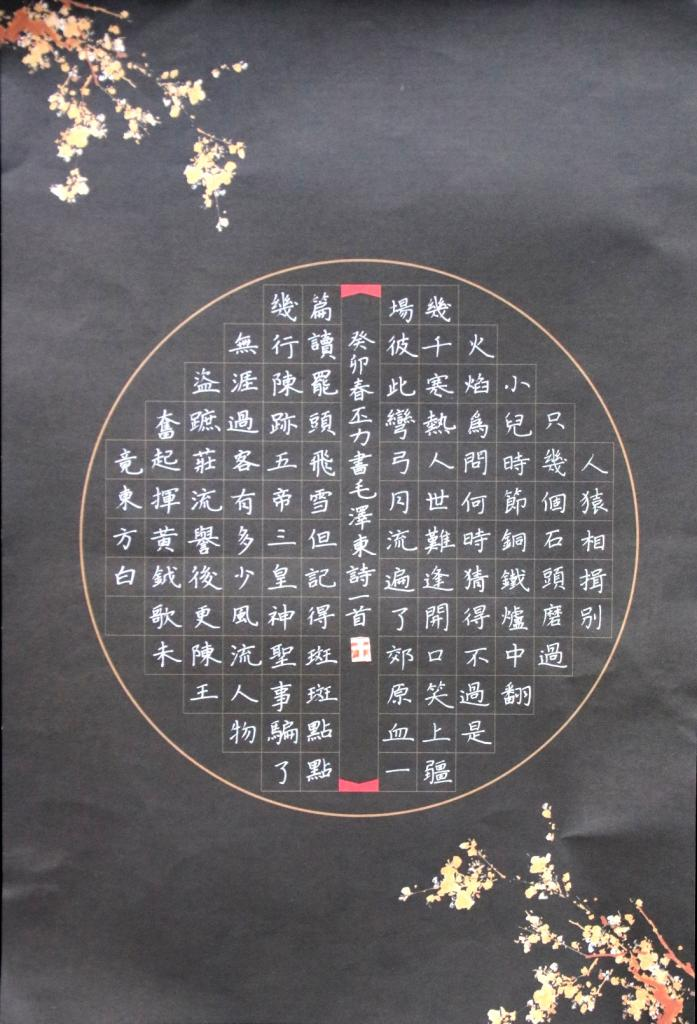 人猿相揖別
只幾個石頭磨過
小兒時節銅鐵爐中翻
火焰爲問何時猜得不過是
幾千寒熱人世難逢開口笑上疆
場彼此彎弓月流遍了郊原血一
癸卯春丕力書毛澤東詩一首
篇讀罷頭飛雪但記得斑斑點點
幾行陳跡五帝三皇神聖事騙了
無涯過客有多少風流人物
盜蹠莊流譽後更陳王
奮起揮黃鉞歌未
竟東方白